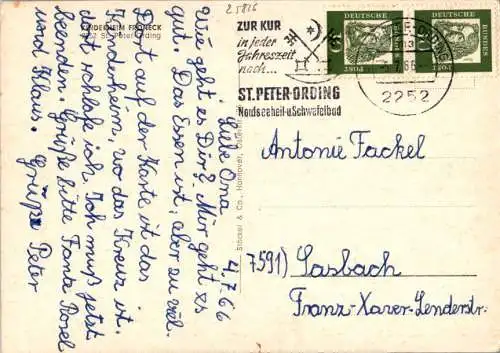 KINDERHEIM FRONECK
2252 St. Peter-Ording
4.7.66
Liebe Oma
Wie geht es Dir? Mir geht es
gut. Das Essen ist, aber zu viel.
Dort auf der Karte ist das
Kinderheim, wo das Kreuz ist.
dort schlafe ich. Ich muß jetzt
beenden. Grüße bitte Tante Rosel
und Klaus. Grüße Peter
Stöckel & Co., Hannover,
25816
ZUR KUR
in jeder
Jahreszeit
nach...
ST. PETER-ORDING
Nordseeheil- u Schwefelbad
DEUTSCHE
BUNDESPOST
DEUTSCHE
BUNDESPOST
ORDING
2252
Antonie Fackel
7591) Sasbach
Franz-Xaver-Lenderstr.